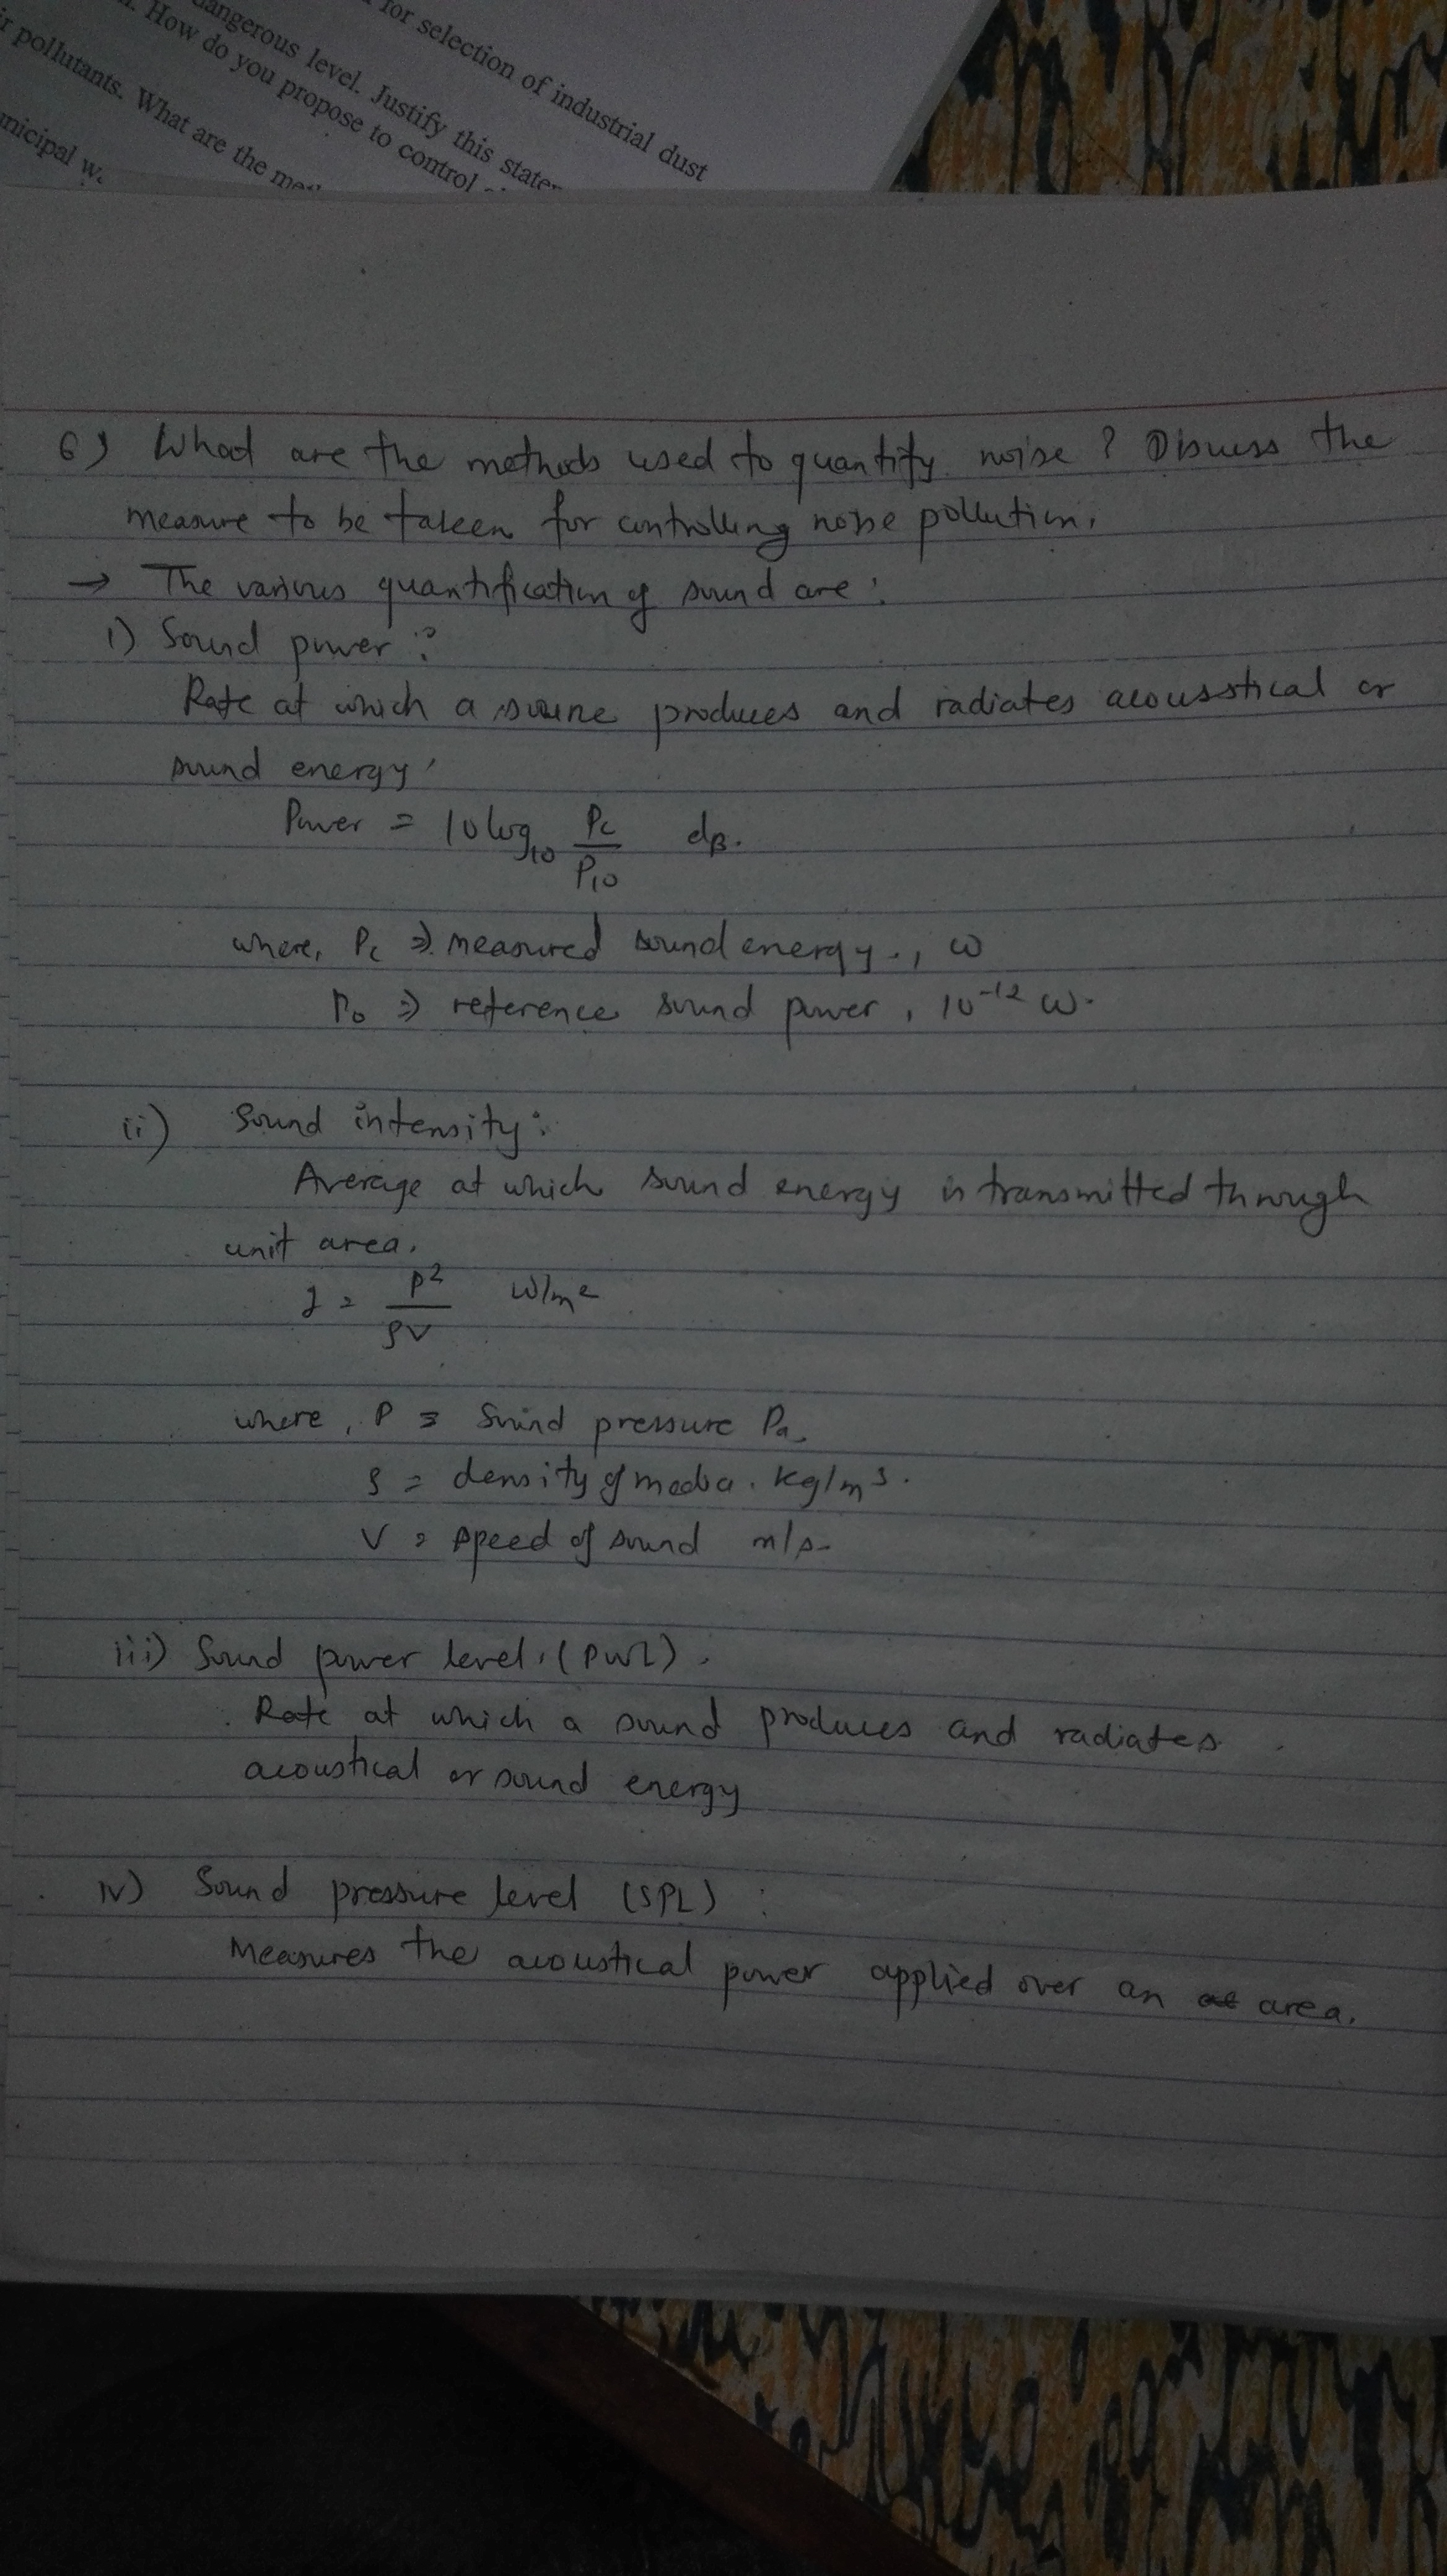 for selection of industrial dust
dangerous level. Justify this
How do you propose to control
ir pollutants. What are the
nicipal
6) What are the methods used to quantify noise? Discuss the
measure to be taken for controlling noise pollution.
→ The various quantification of sound are:
i) Sound power:
Rate at which a source produces and radiates acousstical or
sound energy.
Power = 10 log10 Pc/P10 dB.
where, Pc => measured sound energy., W
P0 => reference sound power, 10^-12 W.
ii) Sound intensity:
Average at which sound energy is transmitted through
unit area.
I = P²/ρV W/m²
where, P = Sound pressure Pa.
ρ = density of media. kg/m³.
V = speed of sound m/s.
iii) Sound power level. (PWL).
Rate at which a sound produces and radiates
acoustical or sound energy
iv) Sound pressure level (SPL) :
Measures the acoustical power applied over an area.